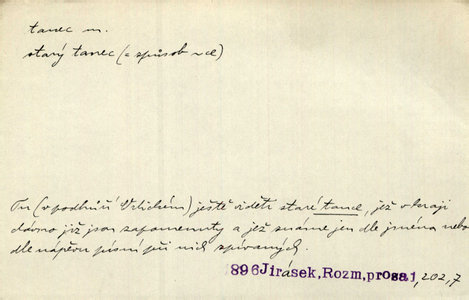 tanec m.
starý tanec (a způsob
Tu (v podhůří Orlickém) ještě viděti staré tance, jež v kraji
dávno již jsou zapomenuty a jež známe jen dle jména nebo
dle nápěvu písní při nich zpívaných.
896 Jirásek, Rozm, prosa 1, 202, 7